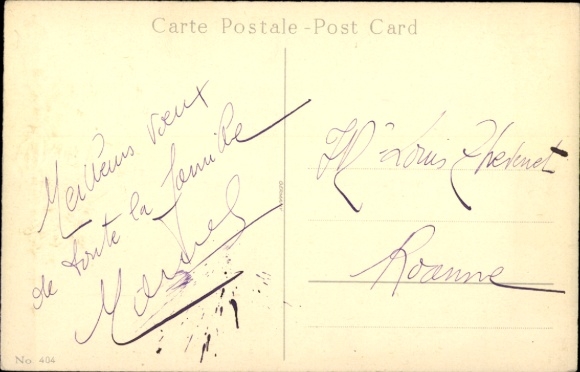 Carte Postale - Post Card
Meilleurs vœux
de toute la famille
Mr Louis Thevenet
Roanne
No. 404